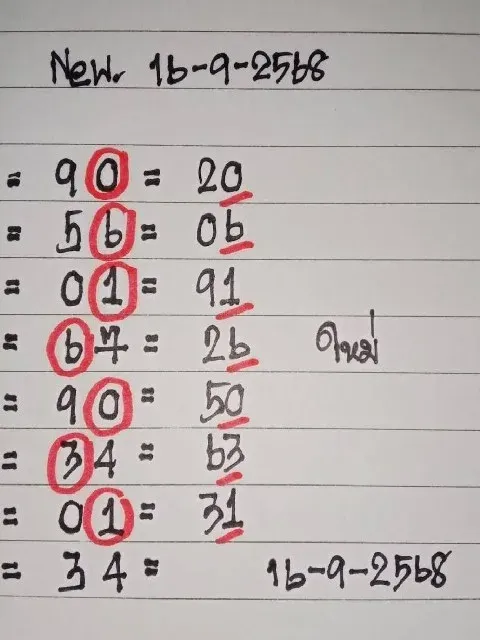 New. 16-9-2568
= 90 = 20
= 56 = 06
= 01 = 91
= 67 = 26 ใหม่
= 90 = 50
= 34 = 63
= 01 = 31
= 34 = 16-9-2568